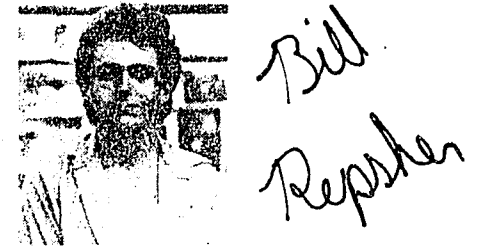 Bill
Repsher